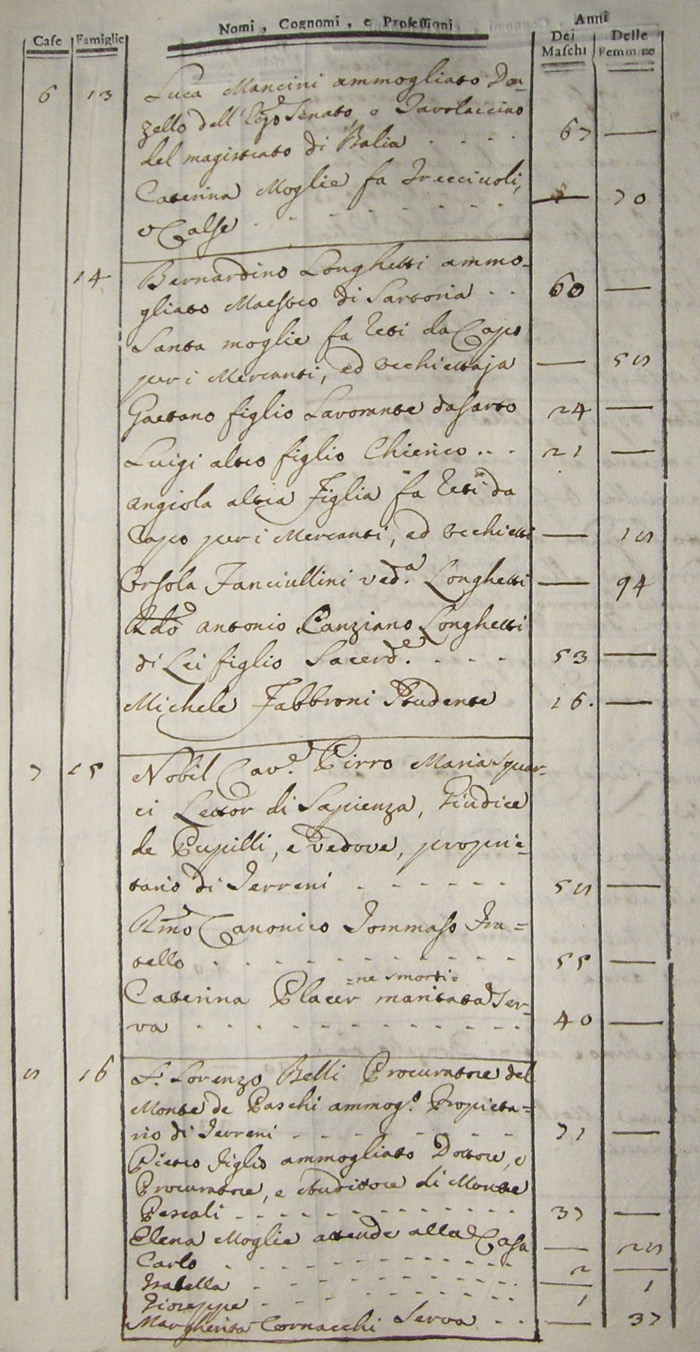 Nomi, Cognomi, e Professioni
Anni
Case Famiglie
Dei Maschi
Delle Femmine
6 13 Luca Mancini ammogliato Don-
zello dell' Senato, o Tavolaccino
del magistrato di Balia . . . . 67 —
Caterina Moglie fa Trecciuoli,
e Calse . . . . . . . — 70
14 Bernardino Longhetti ammo-
gliato Maestro di Sartoria . . 60 —
Santa moglie fa Reti da Capo
per i Mercanti, ed — 58
Gaetano figlio Lavorante da Sarto 24 —
Luigi altro figlio Chierico . . . 21 —
Angiola altra Figlia fa Reti da
Capo per i Mercanti, ed — 18
Orsola Fanciullini ved.a Longhetti — 94
Rdo Antonio Canziano Longhetti
di Lei figlio Sacerd.e . . . . 53 —
Michele Fabbroni Studente 16. —
7 15 Nobil Cav.e Pirro Maria Squar-
ci Lettor di Sapienza, Giudice
de Pupilli, e Vedove, proprie-
tario di Terreni . . . . . . 58 —
Rmo Canonico Tommaso Fra=
tello . . . . . . . . . 55 —
Caterina Placer maritata Ser-
va . . . . . . . . . . 40 —
8 16 Lorenzo Belli Procuratore del
Monte de Paschi ammog.o Propieta=
rio di Terreni - - - - - - 71 —
Pietro Figlio ammogliato Dottore, e
Procuratore, e Auditore di Monte
Pescali - - - - - - - 37 —
Elena Moglie attende alla Casa — 28
Carlo - - - - - - - 2 —
Isabella - - - - - - — 1
Gioseppe - - - - - - 1
Margherita Cornacchi Serva - - — 37